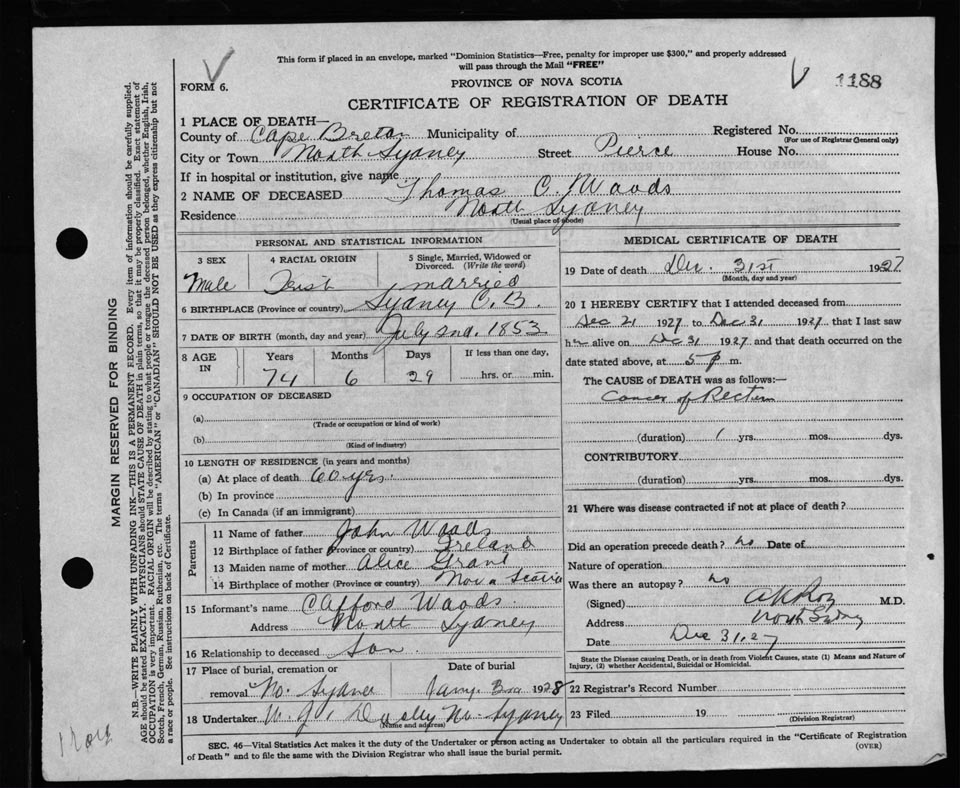 This form if placed in an envelope, marked "Dominion Statistics—Free, penalty for improper use $300," and properly addressed
will pass through the Mail "FREE"
FORM 6.
PROVINCE OF NOVA SCOTIA
1188
CERTIFICATE OF REGISTRATION OF DEATH
1 PLACE OF DEATH—
County of Cape Breton Municipality of Registered No.
(For use of Registrar General only)
City or Town North Sydney Street Pierce House No.
If in hospital or institution, give name
2 NAME OF DECEASED Thomas C. Woods
Residence North Sydney
(Usual place of abode)
PERSONAL AND STATISTICAL INFORMATION
3 SEX 4 RACIAL ORIGIN 5 Single, Married, Widowed or
Divorced. (Write the word)
Male Irish married
6 BIRTHPLACE (Province or country) Sydney C.B.
7 DATE OF BIRTH (month, day and year) July 2nd. 1853
8 AGE IN Years Months Days If less than one day,
74 6 29 hrs. or min.
9 OCCUPATION OF DECEASED
(a)
(Trade or occupation or kind of work)
(b)
(Kind of industry)
10 LENGTH OF RESIDENCE (in years and months)
(a) At place of death 60 yrs.
(b) In province
(c) In Canada (if an immigrant)
Parents
11 Name of father John Woods
12 Birthplace of father (Province or country) Ireland
13 Maiden name of mother Alice Grant
14 Birthplace of mother (Province or country) Nova Scotia
15 Informant's name Clifford Woods.
Address North Sydney
16 Relationship to deceased Son.
17 Place of burial, cremation or Date of burial
removal No. Sydney Jany. 3rd 1928
18 Undertaker W. J. Dooley No. Sydney
(Name and address)
MEDICAL CERTIFICATE OF DEATH
19 Date of death Dec. 31st 1927
(Month, day and year)
20 I HEREBY CERTIFY that I attended deceased from
Dec 21 1927 to Dec 31 1927 that I last saw
him alive on Dec 31 1927 and that death occurred on the
date stated above, at 5 p m.
The CAUSE OF DEATH was as follows:—
Cancer of Rectum
(duration) 1 yrs. mos. dys.
CONTRIBUTORY
(duration) yrs. mos. dys.
21 Where was disease contracted if not at place of death?
Did an operation precede death? no Date of
Nature of operation
Was there an autopsy? no
(Signed) M.D.
Address North Sydney
Date Dec 31, 27
State the Disease causing Death, or in death from Violent Causes, state (1) Means and Nature of
Injury, (2) whether Accidental, Suicidal or Homicidal.
22 Registrar's Record Number
23 Filed 19
(Division Registrar)
SEC. 46—Vital Statistics Act makes it the duty of the Undertaker or person acting as Undertaker to obtain all the particulars required in the "Certificate of Registration
of Death" and to file the same with the Division Registrar who shall issue the burial permit. (OVER)
MARGIN RESERVED FOR BINDING
N.B.—WRITE PLAINLY WITH UNFADING INK—THIS IS A PERMANENT RECORD. Every item of information should be carefully supplied.
AGE should be stated EXACTLY. PHYSICIANS should STATE CAUSE OF DEATH in plain terms, so that it may be properly classified. Exact statement of
OCCUPATION is very important. RACIAL ORIGIN will be described by stating to what people or tongue the deceased person belonged, whether English, Irish,
Scotch, French, German, Russian, Ruthenian, etc. The terms "AMERICAN" or "CANADIAN" SHOULD NOT BE USED as they express citizenship but not
a race or people. See instructions on back of Certificate.